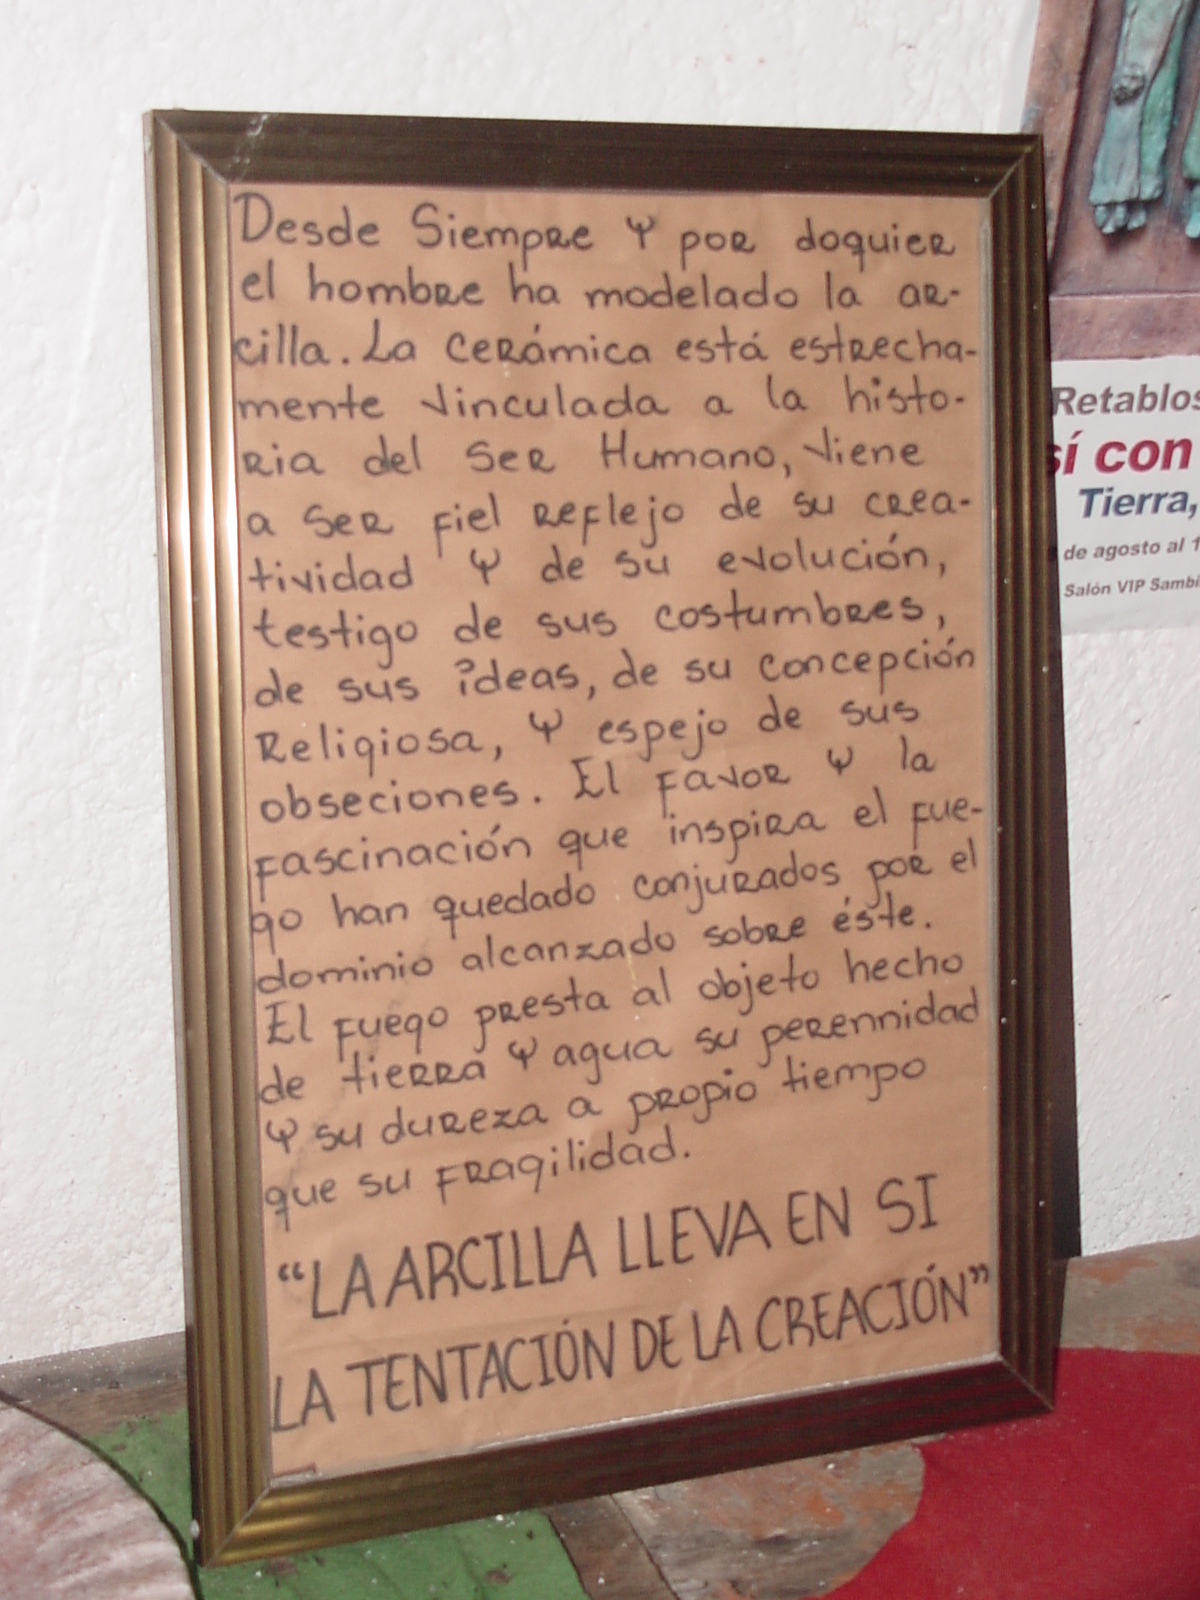 Desde Siempre Y por doquier
el hombre ha modelado la ar-
cilla. La cerámica está estrecha-
mente vinculada a la histo-
ria del Ser Humano, viene
a ser fiel reflejo de su crea-
tividad Y de su evolución,
testigo de sus costumbres,
de sus ideas, de su concepción
Religiosa, Y espejo de sus
obseciones. El favor Y la
fascinación que inspira el fue-
go han quedado conjurados por el
dominio alcanzado sobre éste.
El fuego presta al objeto hecho
de tierra Y agua su perennidad
Y su dureza a propio tiempo
que su fragilidad.
“LA ARCILLA LLEVA EN SI
LA TENTACIÓN DE LA CREACIÓN”
Retablos
sí con
Tierra,
de agosto al 1
Salón VIP Sambi